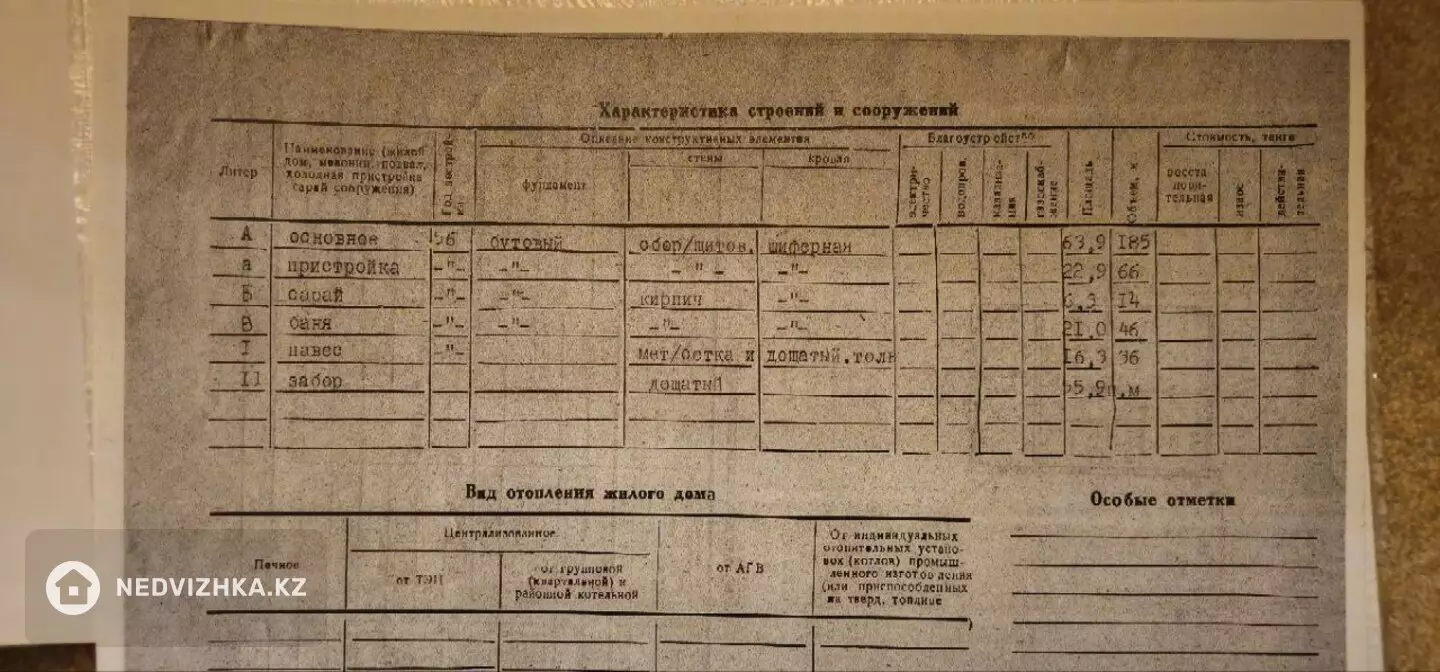 Характеристика строений и сооружений
Литер
Наименование (жилой дом, мезонин, подвал, холодная пристройка сарай сооружения)
Год застройки
Описание конструктивных элементов
фундамент
стены
кровля
Благоустройство
электричество
водопров.
канализация
газоснабжение
Площадь
Объем, м
Стоимость, тенге
восстановительная
износ
действительная
А основное 56 бутовый сбор/щитов. шиферная 63,9 185
а пристройка -"- -"- -"- -"- 22,9 66
Б сарай -"- -"- кирпич -"- 6,3 14
В баня -"- -"- -"- -"- 21,0 46
I навес -"- мет/сетка и дощатый.толь 16,3 36
II забор дощатый п.м
Вид отопления жилого дома
Печное
Централизованное
от ТЭЦ
от групповой (квартальной) и районной котельной
от АГВ
От индивидуальных отопительных установок (котлов) промышленного изготовления (или приспособленных на тверд. топливе
Особые отметки
NEDVIZHKA.KZ